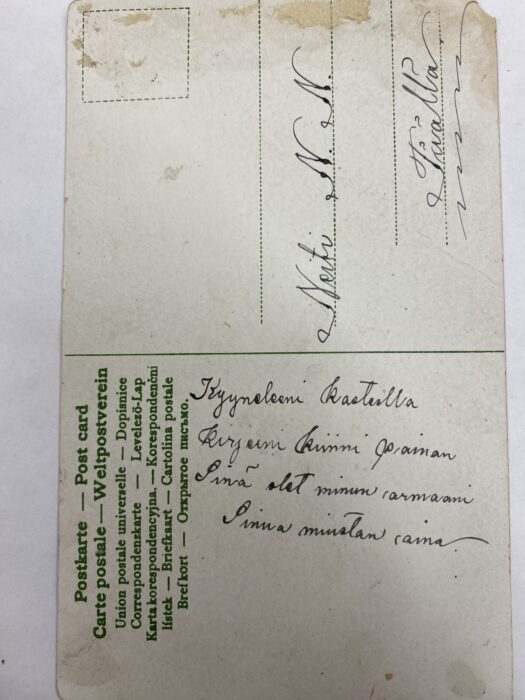 Postkarte — Post card
Carte postale — Weltpostverein
Union postale universelle — Dopisnice
Correspondenzkarte — Levelező-Lap
Karta korespondencyjna. — Korespondenční
lístek — Briefkaart — Cartolina postale
Brefkort — Открытое письмо.
Neiti N. N.
Täällä
Kyyneleeni kasteella
kirjeeni kiinni painan
Sinä olet minun armaani
Sinua muistan aina